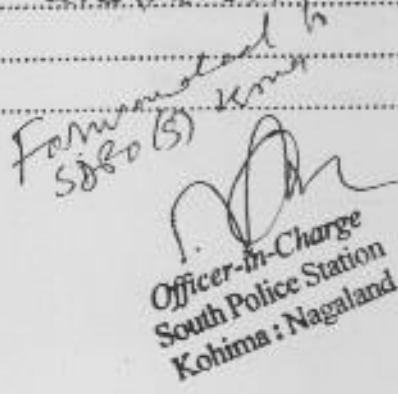 Forwarded to
SDPO (S) Kma
Officer-in-Charge
South Police Station
Kohima : Nagaland